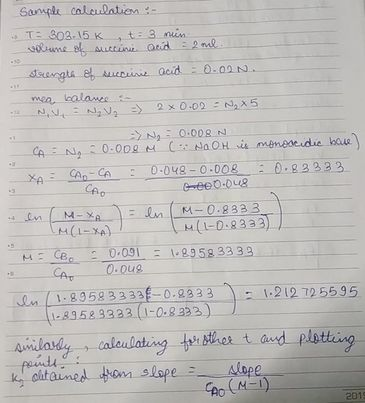 Sample calculation :-
T = 303.15 K , t = 3 min
volume of succinic acid = 2 ml.
strength of succinic acid = 0.02 N.
meq balance :-
N₁V₁ = N₂V₂ => 2 x 0.02 = N₂ x 5
=> N₂ = 0.008 N
CA = N₂ = 0.008 M (∵ NaOH is monoacidic base)
XA = CA0 - CA / CA0 = 0.048 - 0.008 / 0.048 = 0.83333
ln ( M - XA / M (1 - XA) ) = ln ( M - 0.8333 / M (1 - 0.8333) )
M = CB0 / CA0 = 0.091 / 0.048 = 1.89583333
ln ( 1.89583333 - 0.8333 / 1.89583333 (1 - 0.8333) ) = 1.212725595
similarly, calculating for other t and plotting
points. :
K₂ obtained from slope = slope / CA0 (M-1)